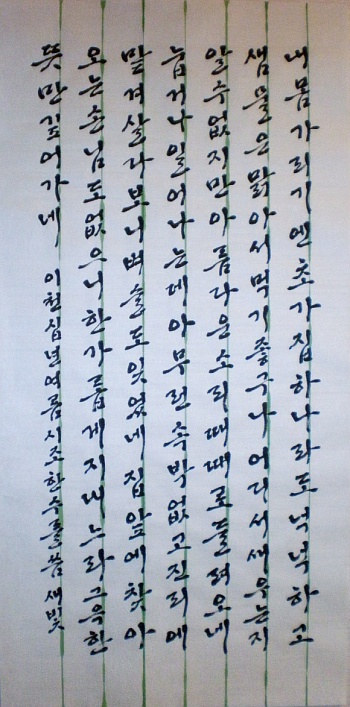 내 몸 가리기엔 초가집 하나라도 넉넉하고
샘물은 맑아서 먹기 좋구나 어디서 새 우는지
알 수 없지만 아름다운 소리 때때로 들려오네
눕거나 일어나는데 아무런 속박 없고 진리에
맡겨 살다보니 벼슬도 잊었네 집 앞에 찾아
오는 손님도 없으니 한가롭게 지내느라 그윽한
뜻만 깊어가네 이천십년 여름 시조 한 수를 씀 새빛